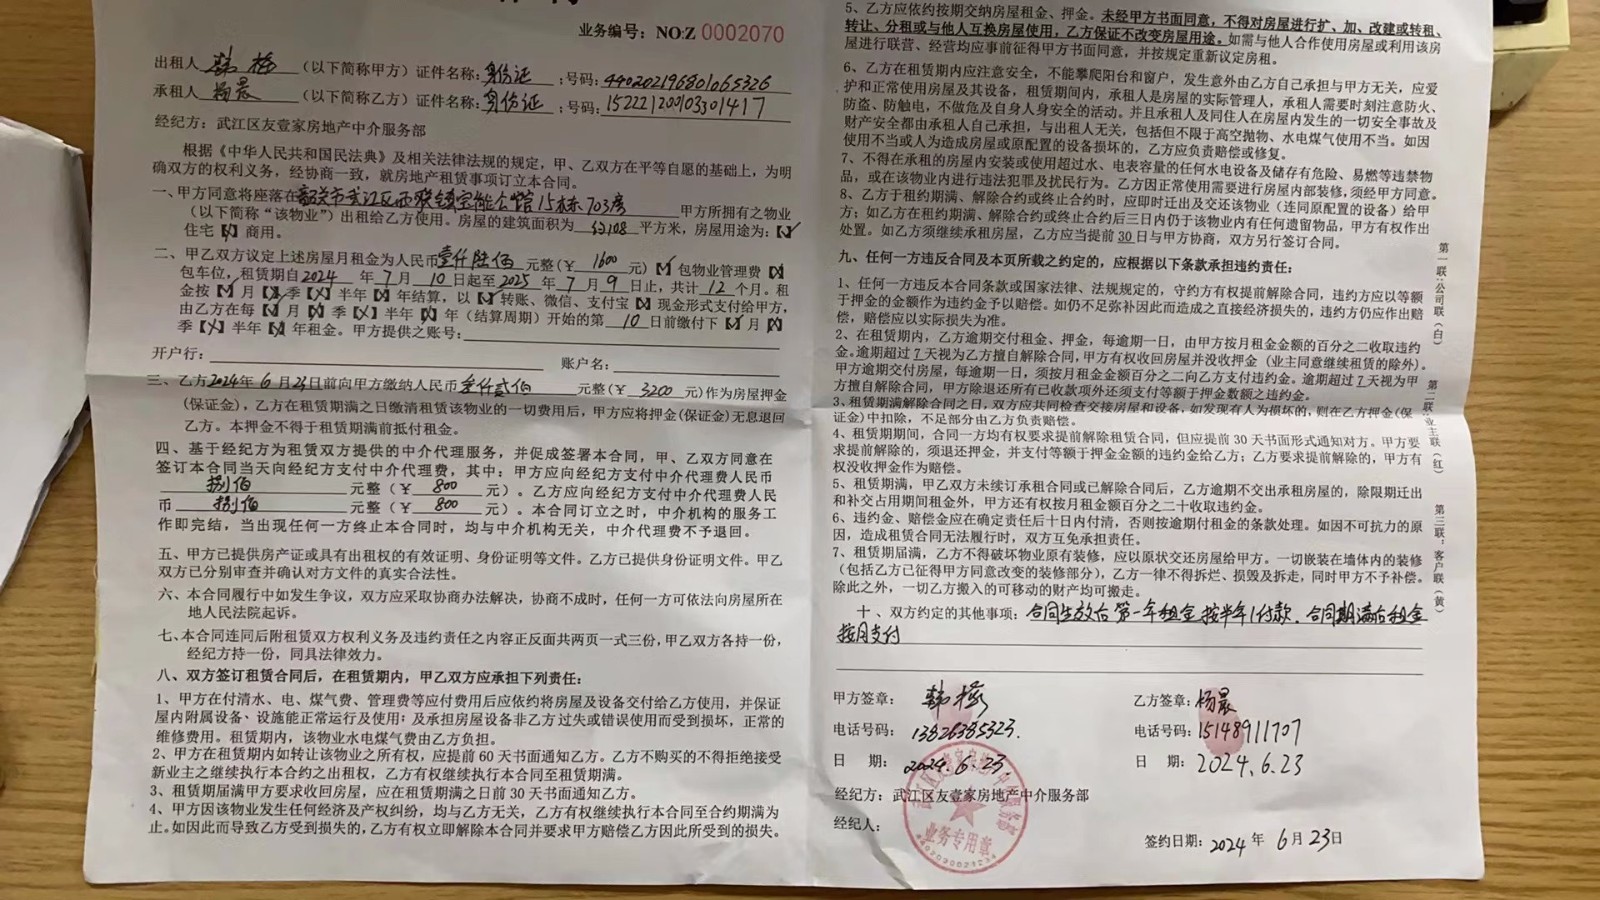 业务编号：NO:Z 0002070
出租人 韩梅 （以下简称甲方）证件名称：身份证 ；号码：440202196801065326
承租人 杨晨 （以下简称乙方）证件名称：身份证 ；号码：152221200103301417
经纪方：武江区友壹家房地产中介服务部
根据《中华人民共和国民法典》及相关法律法规的规定，甲、乙双方在平等自愿的基础上，为明
确双方的权利义务，经协商一致，就房地产租赁事项订立本合同。
一、甲方同意将座落在韶关市武江区西联镇 15栋703房 甲方所拥有之物业
（以下简称“该物业”）出租给乙方使用。房屋的建筑面积为 约108 平方米，房屋用途为：【✓】
住宅【】商用。
二、甲乙双方议定上述房屋月租金为人民币壹仟陆佰 元整（￥ 1600 元）【】包物业管理费【】
包车位，租赁期自2024 年 7 月 10 日起至2025 年 7 月 9 日止，共计 12 个月。租
金按【】月【】季【】半年【】年结算，以【】转账、微信、支付宝【】现金形式支付给甲方，
由乙方在每【】月【】季【】半年【】年（结算周期）开始的第 10 日前缴付下【】月【】
季【】半年【】年租金。甲方提供之账号：
开户行： 账户名：
三、乙方2024年 6 月23日前向甲方缴纳人民币 叁仟贰佰 元整（￥ 3200 元）作为房屋押金
(保证金)，乙方在租赁期满之日缴清租赁该物业的一切费用后，甲方应将押金(保证金)无息退回
乙方。本押金不得于租赁期满前抵付租金。
四、基于经纪方为租赁双方提供的中介代理服务，并促成签署本合同，甲、乙双方同意在
签订本合同当天向经纪方支付中介代理费，其中：甲方应向经纪方支付中介代理费人民币
捌佰 元整（￥ 800 元）。乙方应向经纪方支付中介代理费人民
币 捌佰 元整（￥ 800 元）。本合同订立之时，中介机构的服务工
作即完结，当出现任何一方终止本合同时，均与中介机构无关，中介代理费不予退回。
五、甲方已提供房产证或具有出租权的有效证明、身份证明等文件。乙方已提供身份证明文件。甲乙
双方已分别审查并确认对方文件的真实合法性。
六、本合同履行中如发生争议，双方应采取协商办法解决，协商不成时，任何一方可依法向房屋所在
地人民法院起诉。
七、本合同连同后附租赁双方权利义务及违约责任之内容正反面共两页一式三份，甲乙双方各持一份，
经纪方持一份，同具法律效力。
八、双方签订租赁合同后，在租赁期内，甲乙双方应承担下列责任：
1、甲方在付清水、电、煤气费、管理费等应付费用后应依约将房屋及设备交付给乙方使用，并保证
屋内附属设备、设施能正常运行及使用；及承担房屋设备非乙方过失或错误使用而受到损坏，正常的
维修费用。租赁期内，该物业水电煤气费由乙方负担。
2、甲方在租赁期内如转让该物业之所有权，应提前 60 天书面通知乙方。乙方不购买的不得拒绝接受
新业主之继续执行本合约之出租权，乙方有权继续执行本合同至租赁期满。
3、租赁期届满甲方要求收回房屋，应在租赁期满之日前 30 天书面通知乙方。
4、甲方因该物业发生任何经济及产权纠纷，均与乙方无关，乙方有权继续执行本合同至合约期满为
止。如因此而导致乙方受到损失的，乙方有权立即解除本合同并要求甲方赔偿乙方因此所受到的损失。
5、乙方应依约按期交纳房屋租金、押金。未经甲方书面同意，不得对房屋进行扩、加、改建或转租、
转让、分租或与他人互换房屋使用，乙方保证不改变房屋用途。如需与他人合作使用房屋或利用该房
屋进行联营、经营均应事前征得甲方书面同意，并按规定重新议定房租。
6、乙方在租赁期内应注意安全，不能攀爬阳台和窗户，发生意外由乙方自己承担与甲方无关，应爱
护和正常使用房屋及其设备，租赁期间内，承租人是房屋的实际管理人，承租人需要时刻注意防火、
防盗、防触电，不做危及自身人身安全的活动。并且承租人及同住人在房屋内发生的一切安全事故及
财产安全都由承租人自己承担，与出租人无关，包括但不限于高空抛物、水电煤气使用不当。如因
使用不当或人为造成房屋或原配置的设备损坏的，乙方应负责赔偿或修复。
7、不得在承租的房屋内安装或使用超过水、电表容量的任何水电设备及储存有危险、易燃等违禁物
品，或在该物业内进行违法犯罪及扰民行为。乙方因正常使用需要进行房屋内部装修，须经甲方同意。
8、乙方于租约期满、解除合约或终止合约时，应即时迁出及交还该物业（连同原配置的设备）给甲
方；如乙方在租约期满、解除合约或终止合约后三日内仍于该物业内有任何遗留物品，甲方有权作出
处置。如乙方须继续承租房屋，乙方应当提前 30 日与甲方协商，双方另行签订合同。
九、任何一方违反本合同及本页所载之约定的，应根据以下条款承担违约责任：
1、任何一方违反本合同条款或国家法律、法规规定的，守约方有权提前解除合同，违约方应以等额
于押金的金额作为违约金予以赔偿。如仍不足弥补因此而造成之直接经济损失的，违约方仍应作出赔
偿，赔偿应以实际损失为准。
2、在租赁期内，乙方逾期交付租金、押金，每逾期一日，由甲方按月租金金额的百分之二收取违约
金。逾期超过 7 天视为乙方擅自解除合同，甲方有权收回房屋并没收押金（业主同意继续租赁的除外）。
甲方逾期交付房屋，每逾期一日，须按月租金金额百分之二向乙方支付违约金。逾期超过 7 天视为甲
方擅自解除合同，甲方除退还所有已收款项外还须支付等额于押金数额之违约金。
3、租赁期满解除合同之日，双方应共同检查交接房屋和设备，如发现有人为损坏的，则在乙方押金(保
证金)中扣除，不足部分由乙方负责赔偿。
4、租赁期期间，合同一方均有权要求提前解除租赁合同，但应提前 30 天书面形式通知对方。甲方要
求提前解除的，须退还押金，并支付等额于押金金额的违约金给乙方；乙方要求提前解除的，甲方有
权没收押金作为赔偿。
5、租赁期满，甲乙双方未续订承租合同或已解除合同后，乙方逾期不交出承租房屋的，除限期迁出
和补交占用期间租金外，甲方还有权按月租金额百分之二十收取违约金。
6、违约金、赔偿金应在确定责任后十日内付清，否则按逾期付租金的条款处理。如因不可抗力的原
因，造成租赁合同无法履行时，双方互免承担责任。
7、租赁期届满，乙方不得破坏物业原有装修，应以原状交还房屋给甲方。一切嵌装在墙体内的装修
（包括乙方已征得甲方同意改变的装修部分），乙方一律不得拆烂、损毁及拆走，同时甲方不予补偿。
除此之外，一切乙方搬入的可移动的财产均可搬走。
十、双方约定的其他事项：合同生效后第一年租金按半年1付款，合同期满后租金
按月支付
甲方签章： 韩梅 乙方签章：杨晨
电话号码：13826385323. 电话号码：15148911707
日 期： 2024.6.23. 日 期： 2024.6.23
经纪方：武江区友壹家房地产中介服务部
经纪人：
签约日期：2024 年 6 月 23 日
业务专用章
第一联：公司联（白）
第二联：业主联（红）
第三联：客户联（黄）